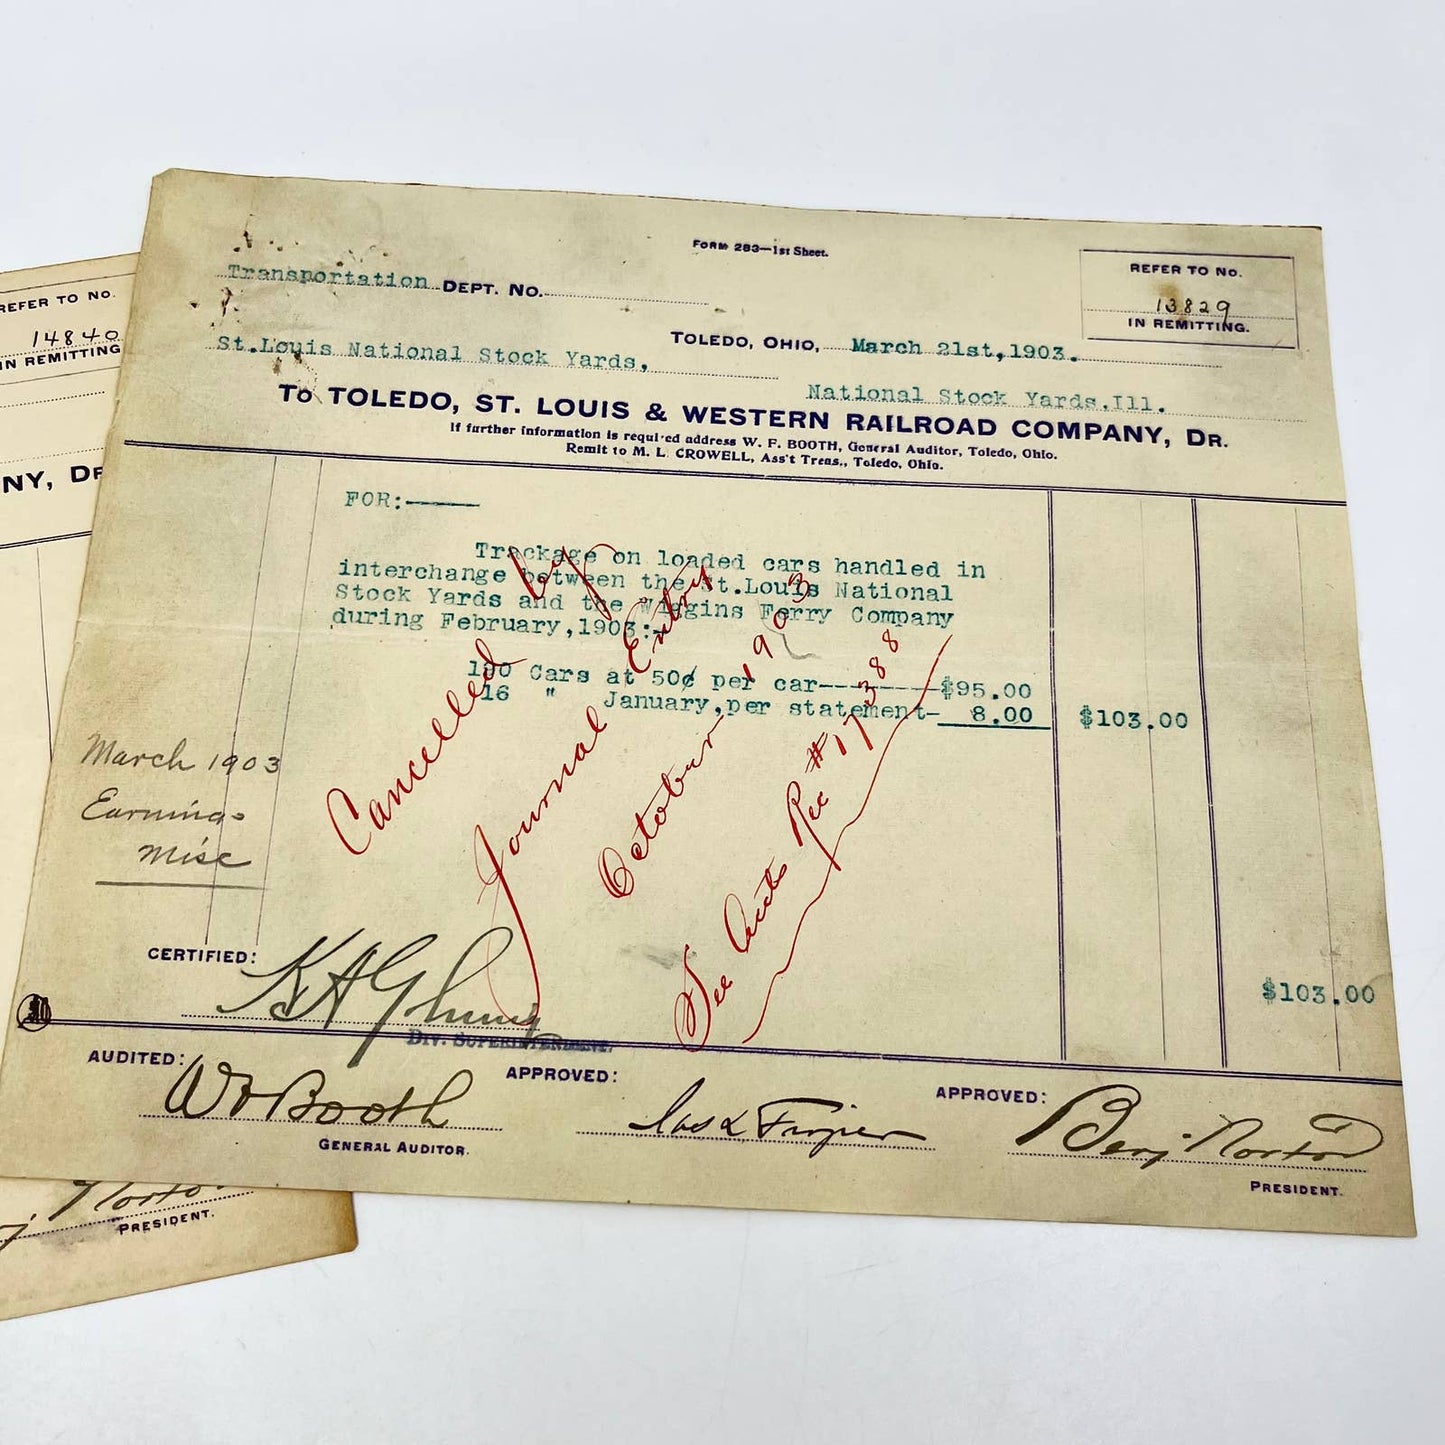 REFER TO No.
14840
IN REMITTING
NY, DR
PRESIDENT.
FORM 283—1st Sheet.
Transportation DEPT. No.
REFER TO No.
13829
IN REMITTING.
TOLEDO, OHIO, March 21st,1903.
St.Louis National Stock Yards,
National Stock Yards,Ill.
To TOLEDO, ST. LOUIS & WESTERN RAILROAD COMPANY, DR.
If further information is required address W. F. BOOTH, General Auditor, Toledo, Ohio.
Remit to M. L. CROWELL, Ass't Treas., Toledo, Ohio.
FOR:
Trackage on loaded cars handled in
interchange between the St.Louis National
Stock Yards and the Wiggins Ferry Company
during February,1903:-
190 Cars at 50¢ per car--------$95.00
16 " January,per statement- 8.00 $103.00
Cancelled by
Journal Entry
October 1903
See Aud's Rec #17388
March 1903
Earnings
Misc
$103.00
CERTIFIED:
DIV. SUPERINTENDENT.
AUDITED: W F Booth
GENERAL AUDITOR.
APPROVED:
APPROVED: Benj Norton
PRESIDENT.